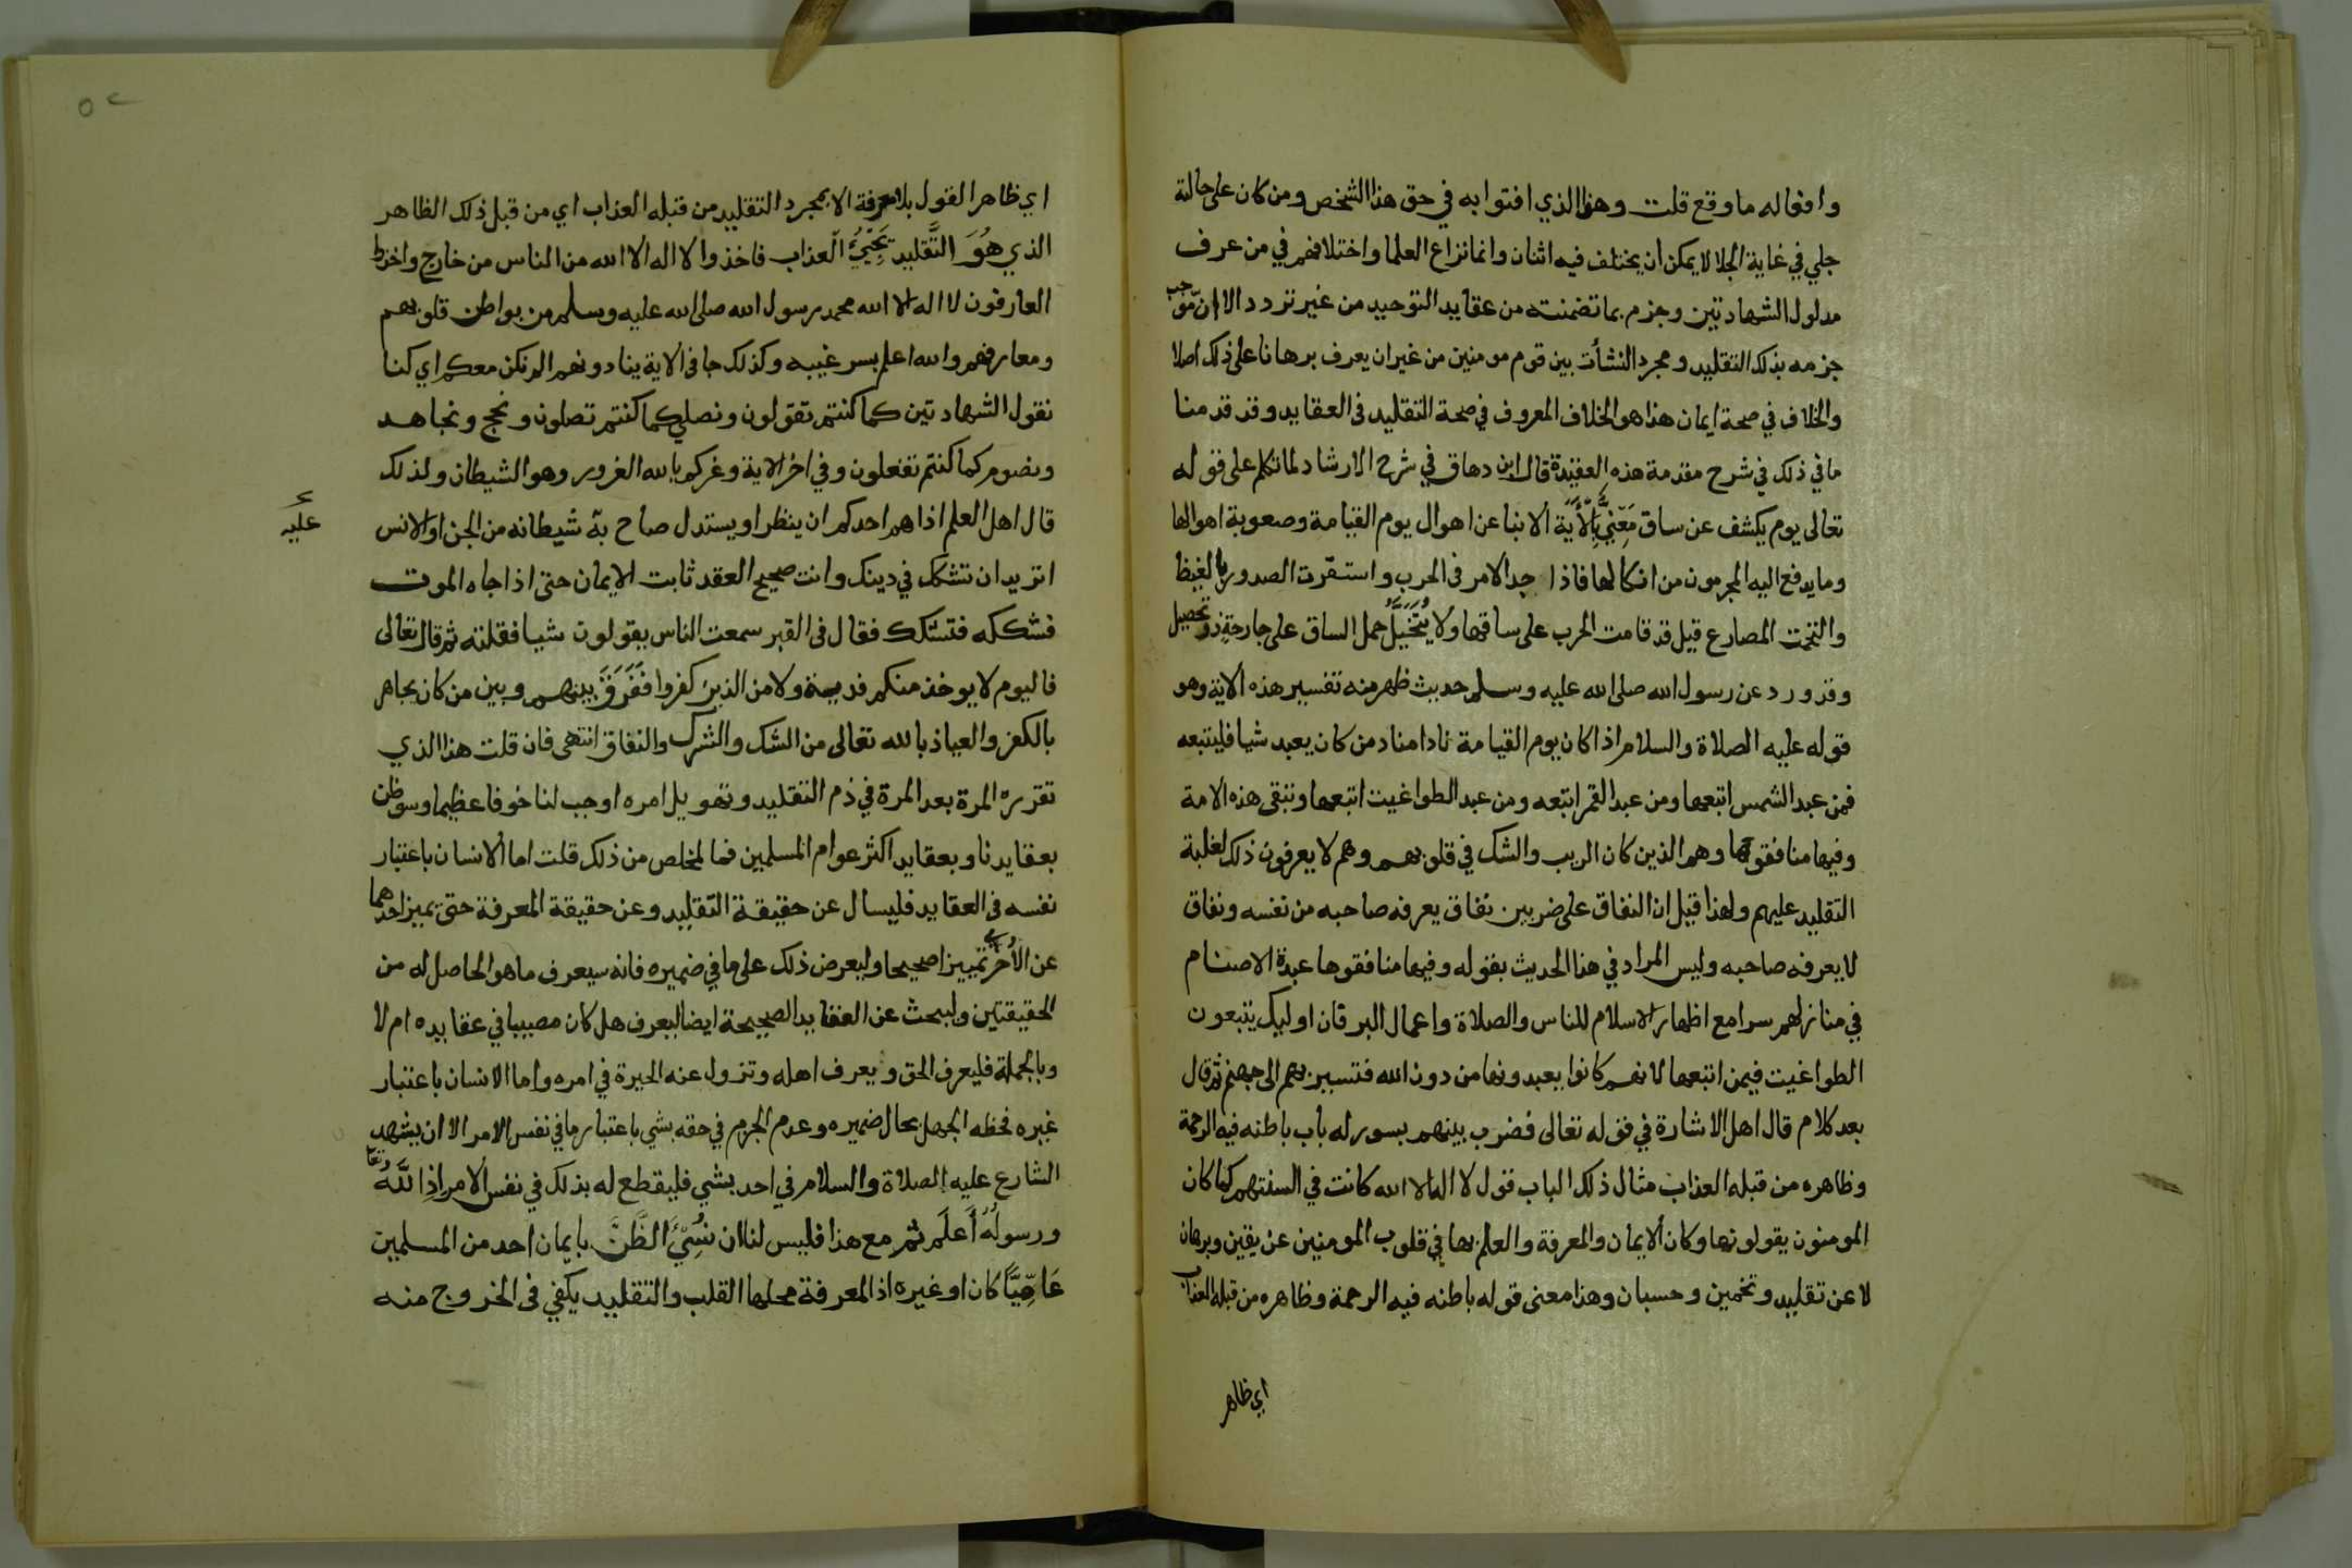 وافعاله ما وقع قلت وهذا الذي افتوا به في حق هذا الشخص ومن كان على حالته
جلي في غاية الجلا لا يمكن أن يختلف فيه اثنان وانما نزاع العلما واختلافهم في من عرف
مدلول الشهادتين وجزم بما تضمنته من عقايد التوحيد من غير تردد الا ان موجب
جزمه بذلك التقليد ومجرد النشأت بين قوم مومنين من غير ان يعرف برهانا على ذلك اصلا
والخلاف في صحة ايمان هذا هو الخلاف المعروف في صحة التقليد في العقايد وقد قدمنا
ما في ذلك في شرح مقدمة هذه العقيدة قال ابن دهاق في شرح الارشاد لما تكلم على قوله
تعالى يوم يكشف عن ساق معني الأية الانبا عن اهوال يوم القيامة وصعوبة اهوالها
وما يدفع اليه المجرمون من انكالها فاذا جد الامر في الحرب واستقرت الصدور بالغيظ
والتخت المصارع قيل قد قامت الحرب على ساقها ولا يُتَخَيَّلُ حمل الساق على جارحة ذو تحصيل
وقد ورد عن رسول الله صلى الله عليه وسلم حديث ظهر منه تفسير هذه الاية وهو
قوله عليه الصلاة والسلام اذا كان يوم القيامة نادا مناد من كان يعبد شيا فليتبعه
فمن عبد الشمس اتبعها ومن عبد القمر اتبعه ومن عبد الطواغيت اتبعها وتبقى هذه الامة
وفيها منافقوها وهم الذين كان الريب والشك في قلوبهم وهم لا يعرفون ذلك لغلبة
التقليد عليهم ولهذا قيل ان النفاق على ضربين نفاق يعرفه صاحبه من نفسه ونفاق
لا يعرفه صاحبه وليس المراد في هذا الحديث بقوله وفيها منافقوها عبدة الاصنام
في منازلهم سرا مع اظهار الاسلام للناس والصلاة واعمال البر فان اوليك يتبعون
الطواغيت فيمن اتبعها لانهم كانوا يعبدونها من دون الله فتسير بهم الى جهنم ثم قال
بعد كلام قال اهل الاشارة في قوله تعالى فضرب بينهم بسور له باب باطنه فيه الرحمة
وظاهره من قبله العذاب مثال ذلك الباب قول لا اله الا الله كانت في السنتهم كما كان
المومنون يقولونها وكان ألايمان والمعرفة والعلم بها في قلوب المومنين عن يقين وبرهان
لا عن تقليد وتخمين وحسبان وهذا معنى قوله باطنه فيه الرحمة وظاهره من قبله العذاب
اي ظاهر
٥٢
اي ظاهر القول بلا معرفة الا بمجرد التقليد من قبله العذاب اي من قبل ذلك الظاهر
الذي هُوَ التَّقليد يَجِيُ العذاب فاخذوا لا اله الا الله من الناس من خارج واخذها
العارفون لا اله الا الله محمد رسول الله صلى الله عليه وسلم من بواطن قلوبهم
ومعارفهم والله اعلم بسر غيبه وكذلك جا في الاية ينادونهم الم نكن معكم اي كنا
نقول الشهادتين كما كنتم تقولون ونصلي كما كنتم تصلون ونحج ونجاهد
ونصوم كما كنتم تفعلون وفي اخر الاية وغركم بالله الغرور وهو الشيطان ولذلك
قال اهل العلم اذا هم احدكم ان ينظر او يستدل صاح به شيطانه من الجن او الانس
عليه
اتريد ان تشكك في دينك وانت صحيح العقد ثابت الايمان حتى اذا جاه الموت
فشككه فتشكك فقال في القبر سمعت الناس يقولون شيا فقلته ثم قال تعالى
فاليوم لا يوخذ منكم فدية ولا من الذين كفروا فَفَرَقَ بينهم وبين من كان يجاهر
بالكفر والعياذ بالله تعالى من الشك والشرك والنفاق انتهى فان قلت هذا الذي
تقرره المرة بعد المرة في ذم التقليد وتهويل امره اوجب لنا خوفا عظيما وسوظن
بعقايدنا وبعقايد اكثر عوام المسلمين فما المخلص من ذلك قلت اما الانسان باعتبار
نفسه في العقايد فليسال عن حقيقة التقليد وعن حقيقة المعرفة حتى يميز احدهما
عن الأخرى تمييزا صحيحا وليعرض ذلك على ما في ضميره فانه سيعرف ما هو الحاصل له من
الحقيقتين وليبحث عن العقايد الصحيحة ايضا ليعرف هل كان مصيبا في عقايده ام لا
وبالجملة فليعرف الحق ويعرف اهله وتزول عنه الحيرة في امره واما الانسان باعتبار
غيره فحظه الجهل بحال ضميره وعدم الجزم في حقه بشي باعتبار ما في نفس الامر الا ان يشهد
الشارع عليه الصلاة والسلام في احد بشي فليقطع له بذلك في نفس الامر اذ اللَّهُ تعا
ورسولُهُ أَعلَم ثم مع هذا فليس لنا ان نُسِيَ الظَّنَّ بايمان احد من المسلمين
عَاميًّا كان او غيره اذ المعرفة محلها القلب والتقليد يكفي في الخروج منه